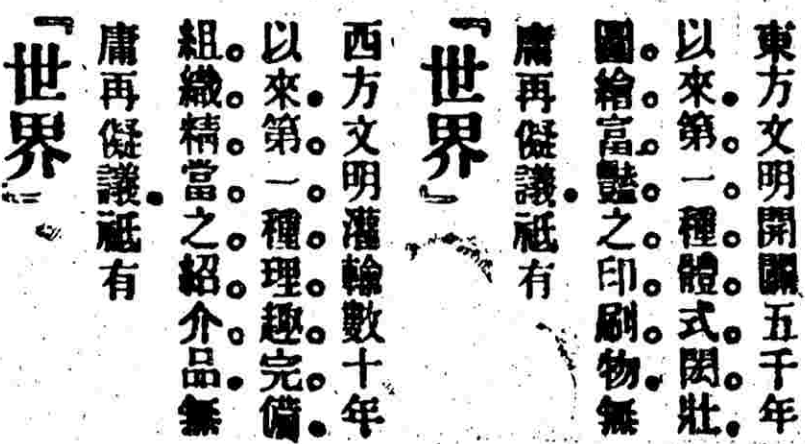 東方文明開闢五千年
以來第一種體式閎壯
圖繪富豔之印刷物無
庸再儗議祗有
『世界』
西方文明灌輸數十年
以來第一種理趣完備
組織精當之紹介品無
庸再儗議祗有
『世界』